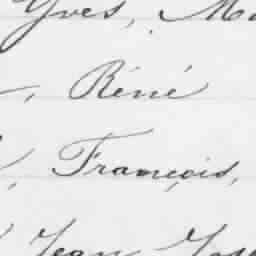 Yves, Ma
, Réné
, François,
Jean Jose